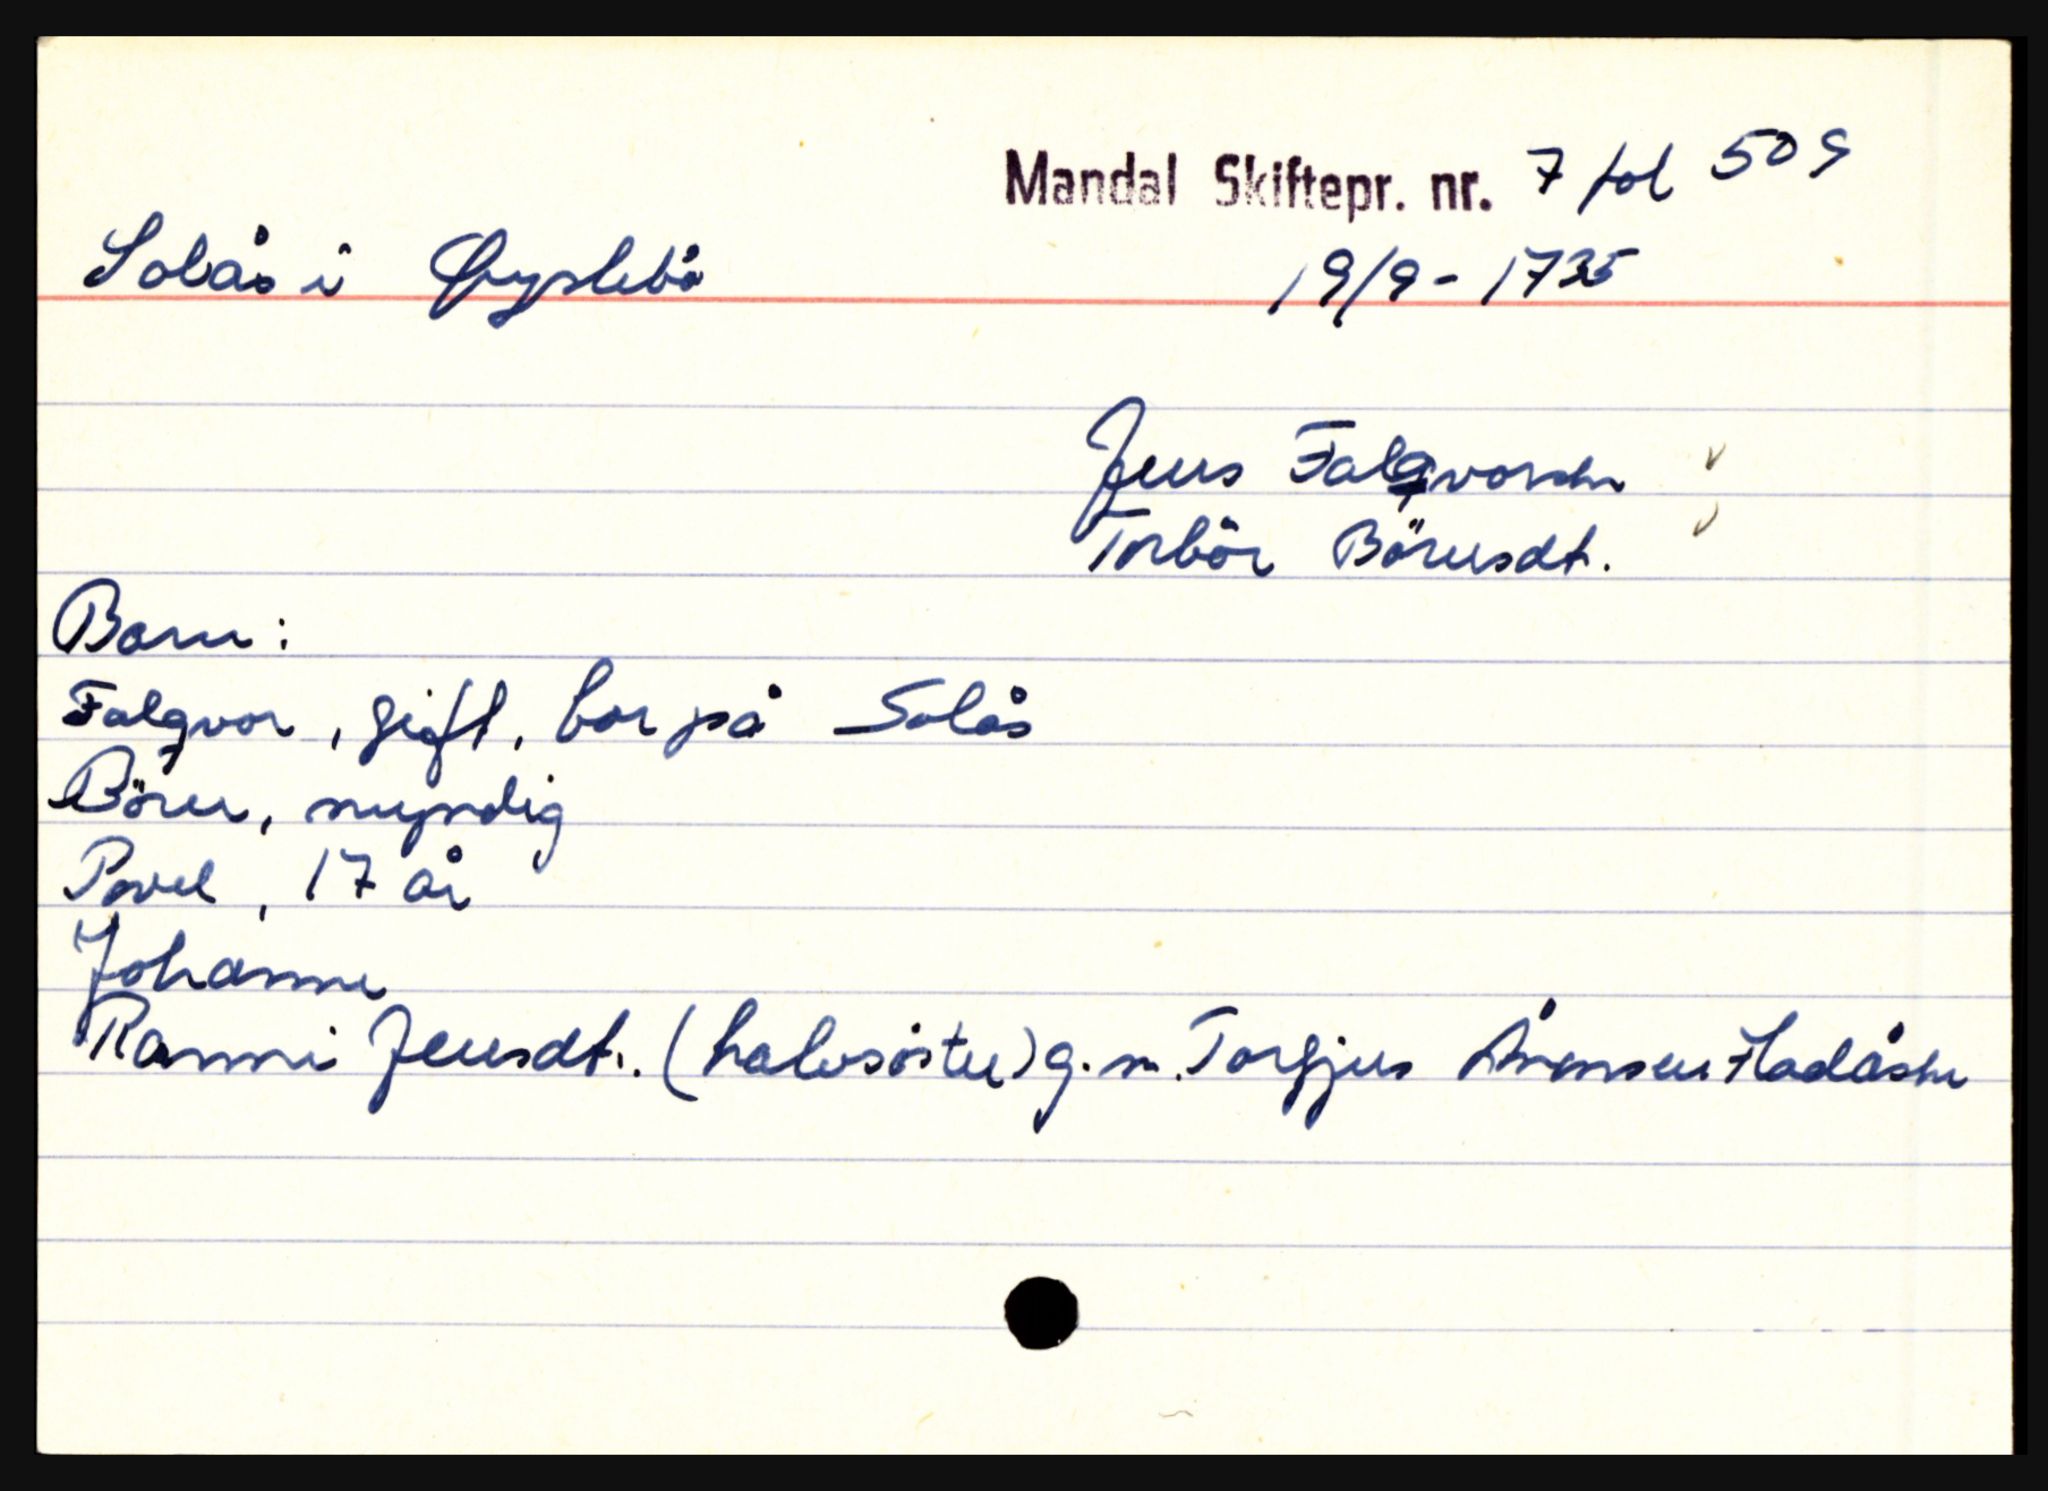 Mandal Skiftepr. nr. 7 fol 509
Solås i Øyslebö
19/9 - 1735
Jens Falqvorsen
Torbör Börusdt.
Barn:
Falqvor, gift, bor på Solås
Böru, myndig
Povel, 17 år
Johanne
Ranni Jensdt. (halvsöster) g. m. Torgjus Ånensen Hadåsen